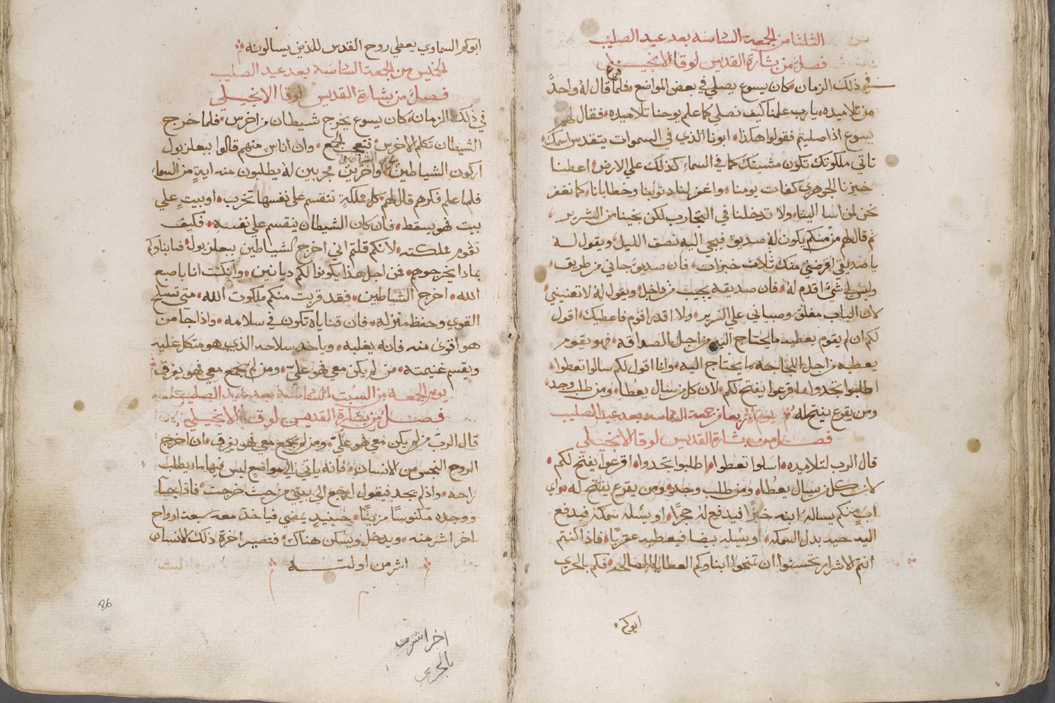 الثلثا من الجمعة السادسة بعد عيد الصليب
فصل من بشارة القديس لوقا الانجيلي
في ذلك الزمان كان يسوع يصلي في بعض المواضع فلما فرغ قال له واحد
من تلاميذه يارب علمنا كيف نصلي كما علم يوحنا تلاميذه فقال لهم
يسوع اذا صليتم فقولوا هكذا ابونا الذي في السموات يتقدس اسمك
تاتي ملكوتك تكون مشيتك كما في السماء كذلك علي الارض اعطنا
خبزنا الجوهري كفات يومنا واغفر لنا ذنوبنا وخطايانا كما نغفر
نحن لمن اسا الينا ولا تدخلنا في التجارب لكن نجينا من الشرير
ثم قال لهم من منكم يكون له صديق فيجي اليه نصف الليل ويقول له
يا صديقي اقرضني منك ثلاث خبزات فان صديق جاني من طريق
وليس لي شي اقدم له فان صديقه يجيب من داخل ويقول له لا تعنيني
لان الباب مغلق وصبياني علي السرير ولا اقدر اقوم فاعطيك اقول
لكم ان لم يقوم يعطيه ما يحتاج اليه من اجل الصداقة فهو يقوم
يعطيه من اجل اللجاجه ما يحتاج اليه وانا اقول لكم سالوا تعطوا
اطلبوا تجدوا اقرعوا يفتح لكم لان كل من يسال يعطا ومن طلب وجد
ومن يقرع يفتح له يوم الاربعا من جمعة السادسة بعد عيد الصليب
فصل من بشارة القديس لوقا الانجيلي
قال الرب لتلاميذه اسالوا تعطوا اطلبوا تجدوا اقرعوا يفتح لكم
لان كل من يسال يعطا ومن طلب وجد ومن يقرع يفتح له واي
اب منكم يساله ابنه خبزا فيدفع له حجرا او يسله سمكة فيدفع
اليه حيه بدل السمكة او يسله بيضا فيعطيه عقربا فاذا كنتم
انتم الاشرار تحسنوا ان تمنحوا ابناوكم العطايا الصالحة فكم بالحري
ابوكم
ابوكم السماوي يعطي روح القدس للذين يسالونه
الخميس من الجمعة السادسة بعد عيد الصليب
فصل من بشارة القديس لوقا الانجيلي
في ذلك الزمان كان يسوع يخرج شيطان من اخرس فلما خرج
الشيطان تكلم الاخرس فتعجب الجمع وان اناس منهم قالوا ببعلزبول
اركون الشياطين واخرين مجربين له يطلبون منه اية من السما
فلما علم فكرهم قال لهم كل مملكة تنقسم علي نفسها تخرب او بيت علي
بيت فهو يسقط فان كان الشيطان ينقسم علي نفسه فكيف
تقوم مملكته لانكم قلتم اني اخرج الشياطين ببعلزبول فابناوكم
بماذا يخرجوهم فمن اجل هذا يكونوا لكم ديانين وان كنت انا باصبع
الله اخرج الشياطين فقد قربت منكم ملكوت الله متي تسلح
القوي وحفظ منزله فان قناياه تكون في سلامه واذا جا من
هو اقوي منه فانه يغلبه وياخذ سلاحه الذي هو متكل عليه
ويقسم غنيمته من لم يكن معي فهو علي ومن لم يجمع معي فهو يفرق
يوم الجمعة من السبت السادسة بعد عيد الصليب
فصل من بشارة القديس لوقا الانجيلي
قال الرب من لم يكن معي فهو علي ومن لم يجمع معي فهو يفرق ان اخرج
الروح النجس من الانسان فانه ياتي الي مواضع ليس فيها ما يطلب
راحه واذا لم يجد فيقول ارجع الي بيتي من حيث خرجت فاذا جا
ووجده مكنوسا مزينا حينيذ يمضي فياخذ معه سبعة ارواح
اخر اشر منه ويدخل ويسكن هناك فتصير اخرة ذلك الانسان
اشر من اولته
86
اخر اشر
بالحري